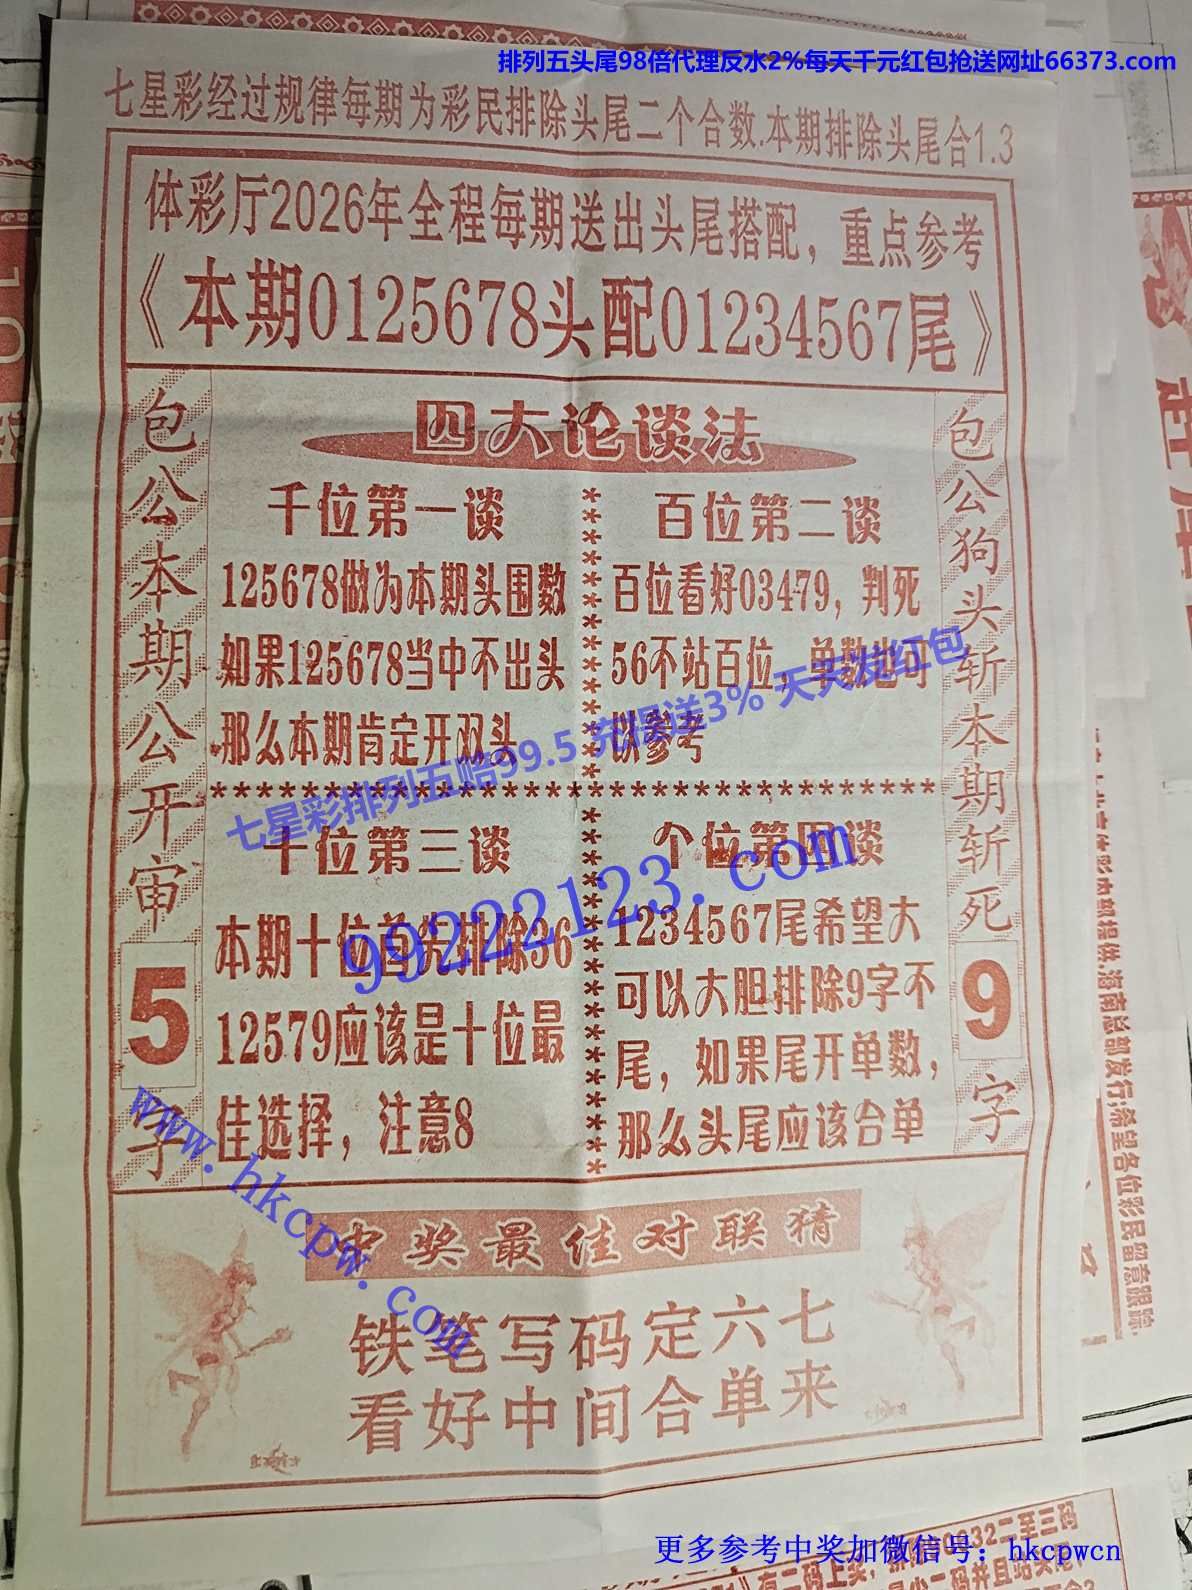 排列五头尾98倍代理反水2%每天千元红包抢送网址66373.com
七星彩经过规律每期为彩民排除头尾二个合数.本期排除头尾合1.3
体彩厅2026年全程每期送出头尾搭配，重点参考
《本期0125678头配01234567尾》
包公本期公开审5字
四大论谈法
千位第一谈
125678做为本期头围数
如果125678当中不出头
那么本期肯定开双头
百位第二谈
百位看好03479，判死
56不站百位，单数也可
以参考
七星彩排列五赔99.5 充提送3% 天天发红包
十位第三谈
本期十位首先排除36
12579应该是十位最
佳选择，注意8
个位第四谈
1234567尾希望大
可以大胆排除9字不
尾，如果尾开单数，
那么头尾应该合单
99222123.com
包公狗头斩本期斩死9字
www.hkcpw.com
中奖最佳对联猜
铁笔写码定六七
看好中间合单来
海南总部发行;希望各位彩民留意跟踪.
更多参考中奖加微信号：hkcpwcn